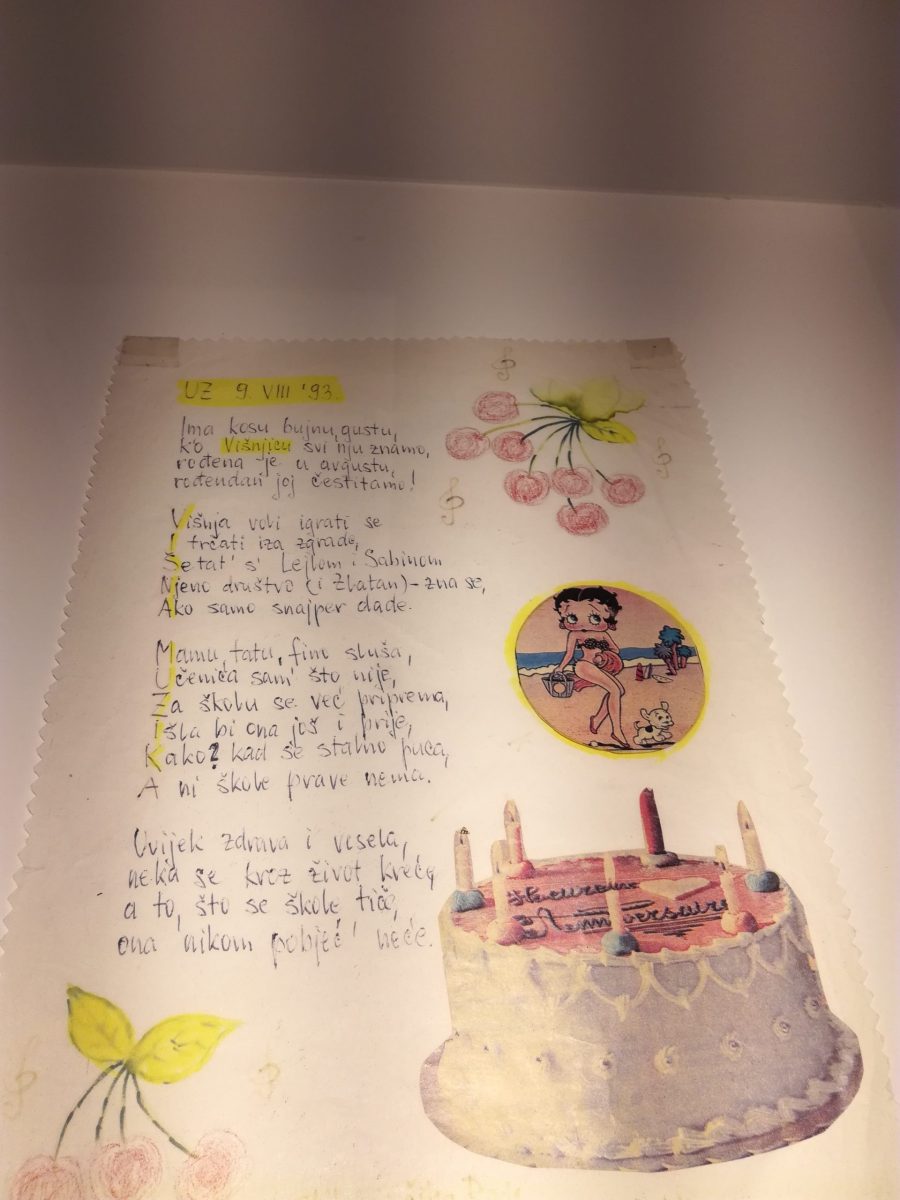 UZ 9. VIII '93.
Ima kosu bujnu, gustu,
k'o Višnjicu svi nju znamo,
rođena je u avgustu,
rođendan joj čestitamo!
Višnja voli igrati se
I trčati iza zgrade,
Šetat' s' Lejlom i Sabinom
Njeno društvo (i Zlatan) - zna se,
Ako samo snajper dade.
Mamu, tatu, fino sluša,
Učenica sam' što nije,
Za školu se već priprema,
Išla bi ona još i prije,
Kako? kad se stalno puca,
A ni škole prave nema.
Uvijek zdrava i vesela,
neka se kroz život kreće
a to, što se škole tiče,
ona nikom pobjeć' neće.
Heureux
Anniversaire